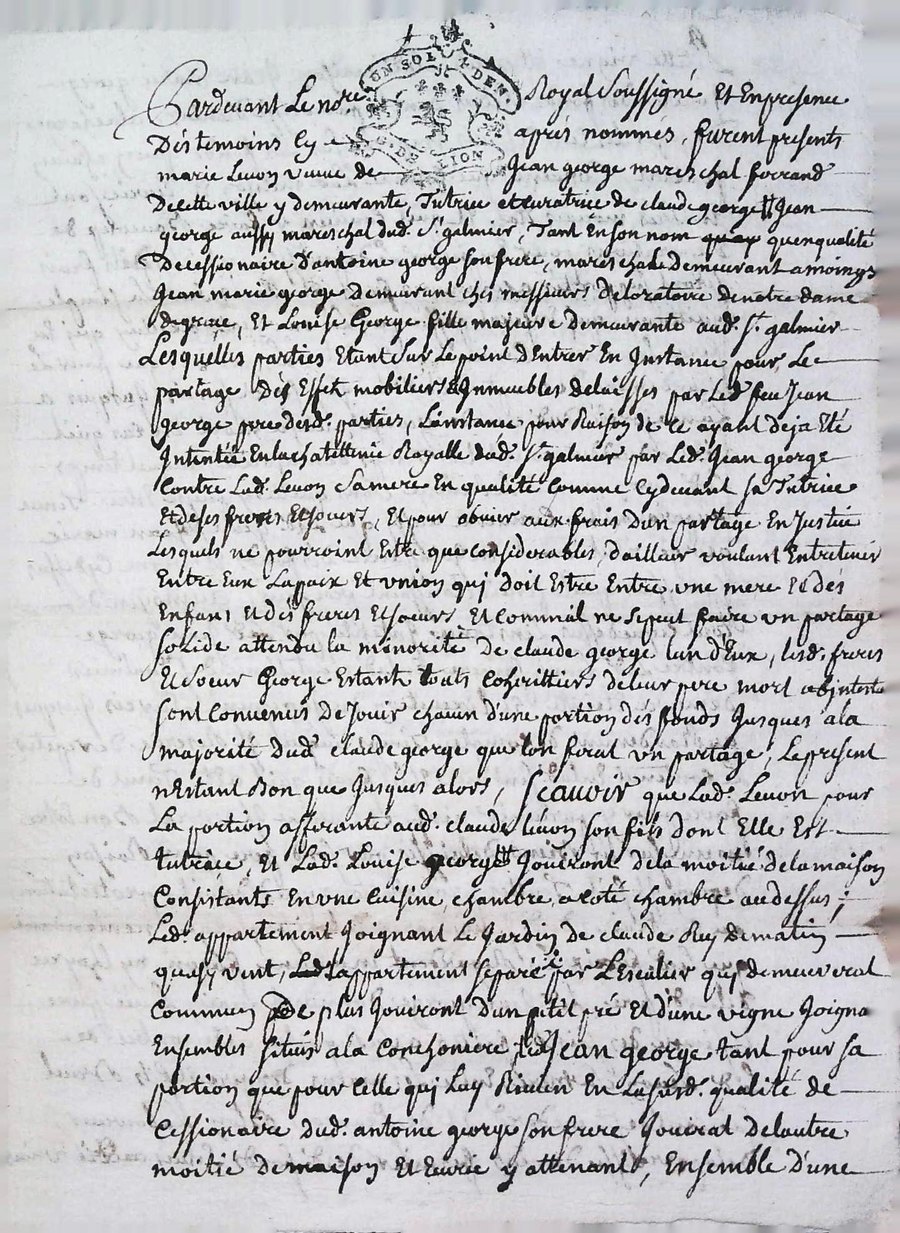 ON SOL 4 DEN.
G. DE LION
Pardevant Le nore Royal Soussigné Et En presence
Des temoins Cy aprés nommés, furent presents
marie Levon veuve de Jean george mareschal ferrand
De cette ville y demeurante, Tutrice et curatrice de claude george Jean
george aussy mareschal dud. St. galmier, Tant En son nom quenqualité
De cessionaire D'antoine george son frere, mareschal demeurant a moings
Jean marie george demeurant ches messieurs De loratoire de notre dame
de grace, Et Louise George fille majeure demeurante aud. St. galmier
Lesquelles parties Etant Sur Le point d'Entrer En Instance pour Le
partage Des Effets mobiliers & Inmeubles delaisses par Led. feu Jean
george pre desd. parties, L'instance pour Raison de ce ayant deja Eté
Intentée En la chatellenie Royalle dud. St. galmier par Led. Jean george
Contre Lad. Levon Sa mere En qualité comme Cydevant sa Tutrice
Et de ses freres Et soeurs, Et pour obvier aux frais d'un partage En Justice
Lesquels ne pourroint Estre que considerables, dailleur voulant Entretenir
Entre Eux La paix Et vnion qui doit Estre Entre vne mere Et des
Enfans Et des freres Et soeurs, Et comme il ne se peut faire vn partage
solide attendu la minorité de claude george lun d'Eux, lesd. freres
Et Soeur George Estants touts Coherittiers de leur pere mort abintestat
sont Convenus De Jouir chacun d'une portion des fonds Jusques a la
majorité Dud. claude george que l'on ferat vn partage, Le present
n'Estant Bon que Jusques alors, Scauoir que Lad. Levon pour
La portion afferante aud. claude Levon son fils dont Elle Est
tutrice, Et Lad. Louise george Jouiront de la moitié de la maison
Consistants En vne Cuisine, chambre a coté chambre au dessus;
Led. appartement Joignant Le Jardin de claude Rey de matin
quasy vent, L'appartement separé par L'Escalier qui demeurerat
Commun De plus Jouiront d'un petit pré Et d'une vigne Joigna
Ensembles situés a la Conchoniere Led. Jean george tant pour sa
portion que pour Celle qui Luy Revien En La susd. qualité de
Cessionaire dud. antoine george son frere Jouirat De lautre
moitié de maison Et Ecurie y attenant, Ensemble d'une